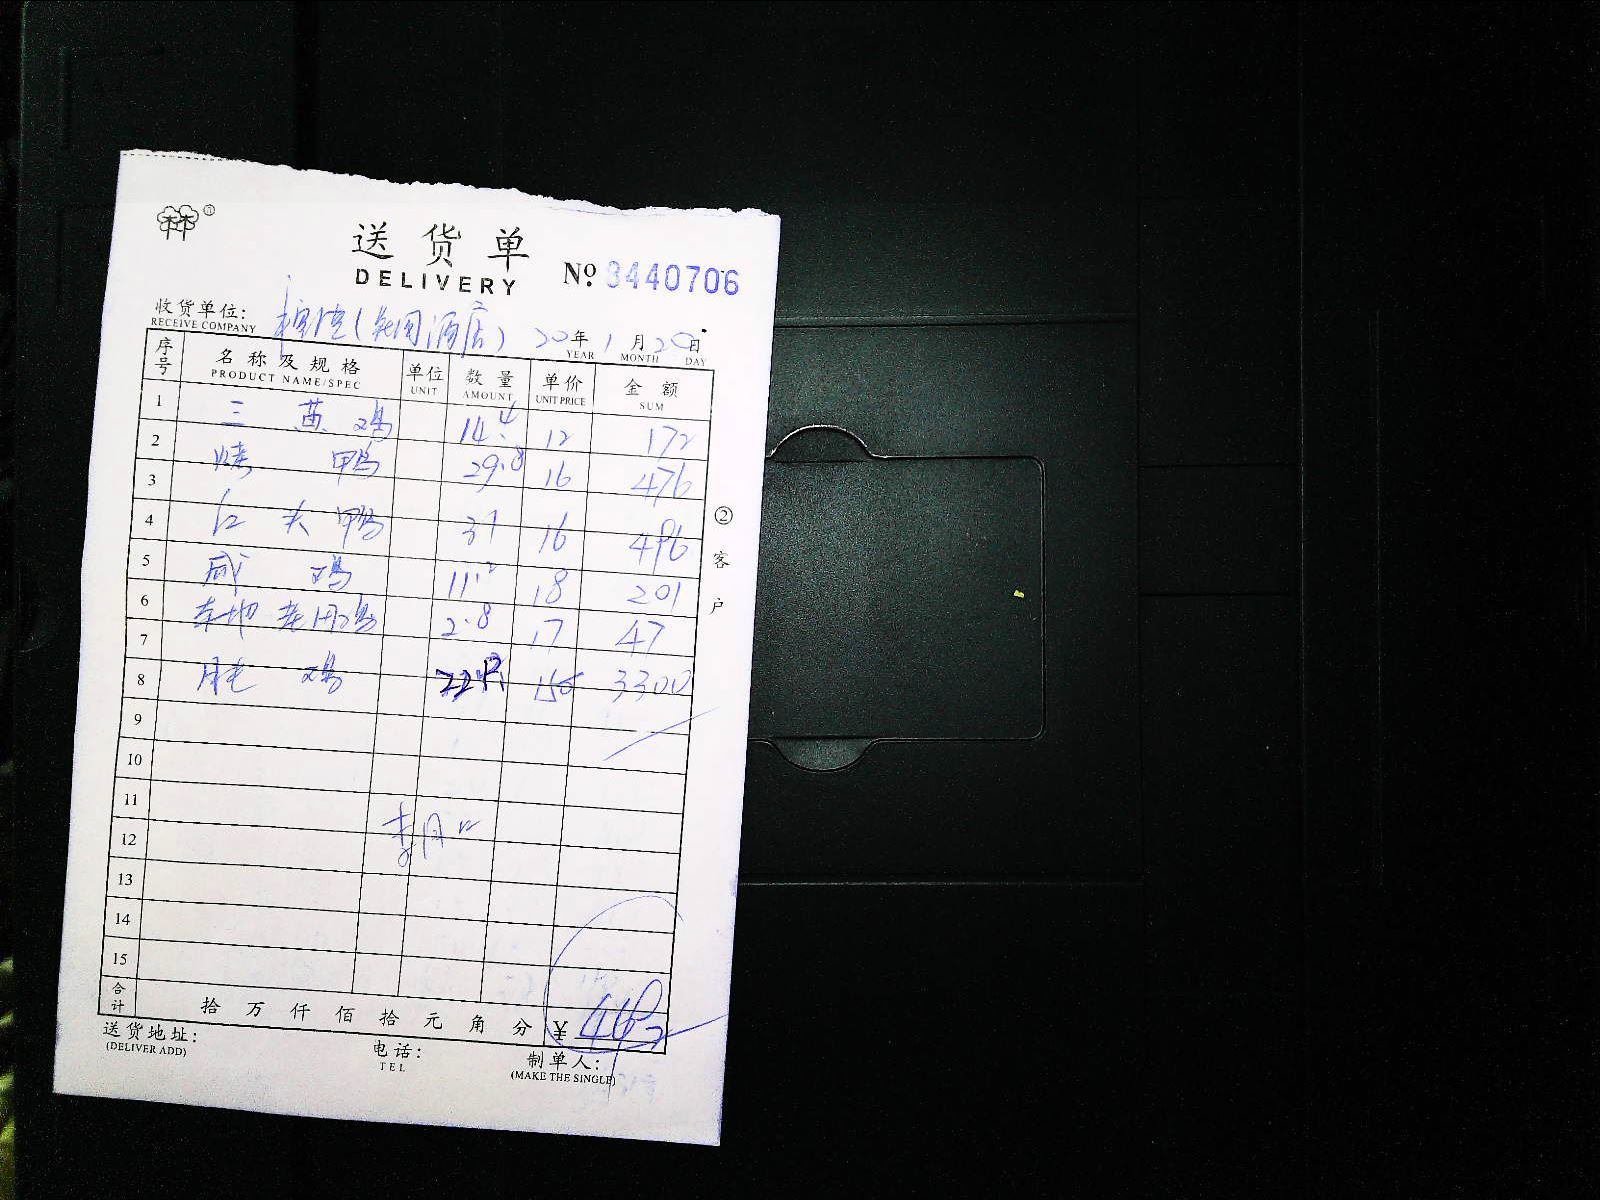 林林 ®
送货单
DELIVERY
№ 3440706
收货单位: (花园酒店) 20年1月20日
RECEIVE COMPANY YEAR MONTH DAY
序号 名称及规格 单位 数量 单价 金额
PRODUCT NAME/SPEC UNIT AMOUNT UNIT PRICE SUM
1 三黄鸡 14.4 12 172
2 烤鸭 29.8 16 476
3
4 红头鸭 31 16 496
5 咸鸡 11.2 18 201
6 本地老母鸡 2.8 17 47
7
8 鸡 22 150 3300
9
10
11
12
13
14
15
合计 拾 万 仟 佰 拾 元 角 分 ¥
② 客户
送货地址:
(DELIVER ADD)
电话:
TEL
制单人:
(MAKE THE SINGLE)